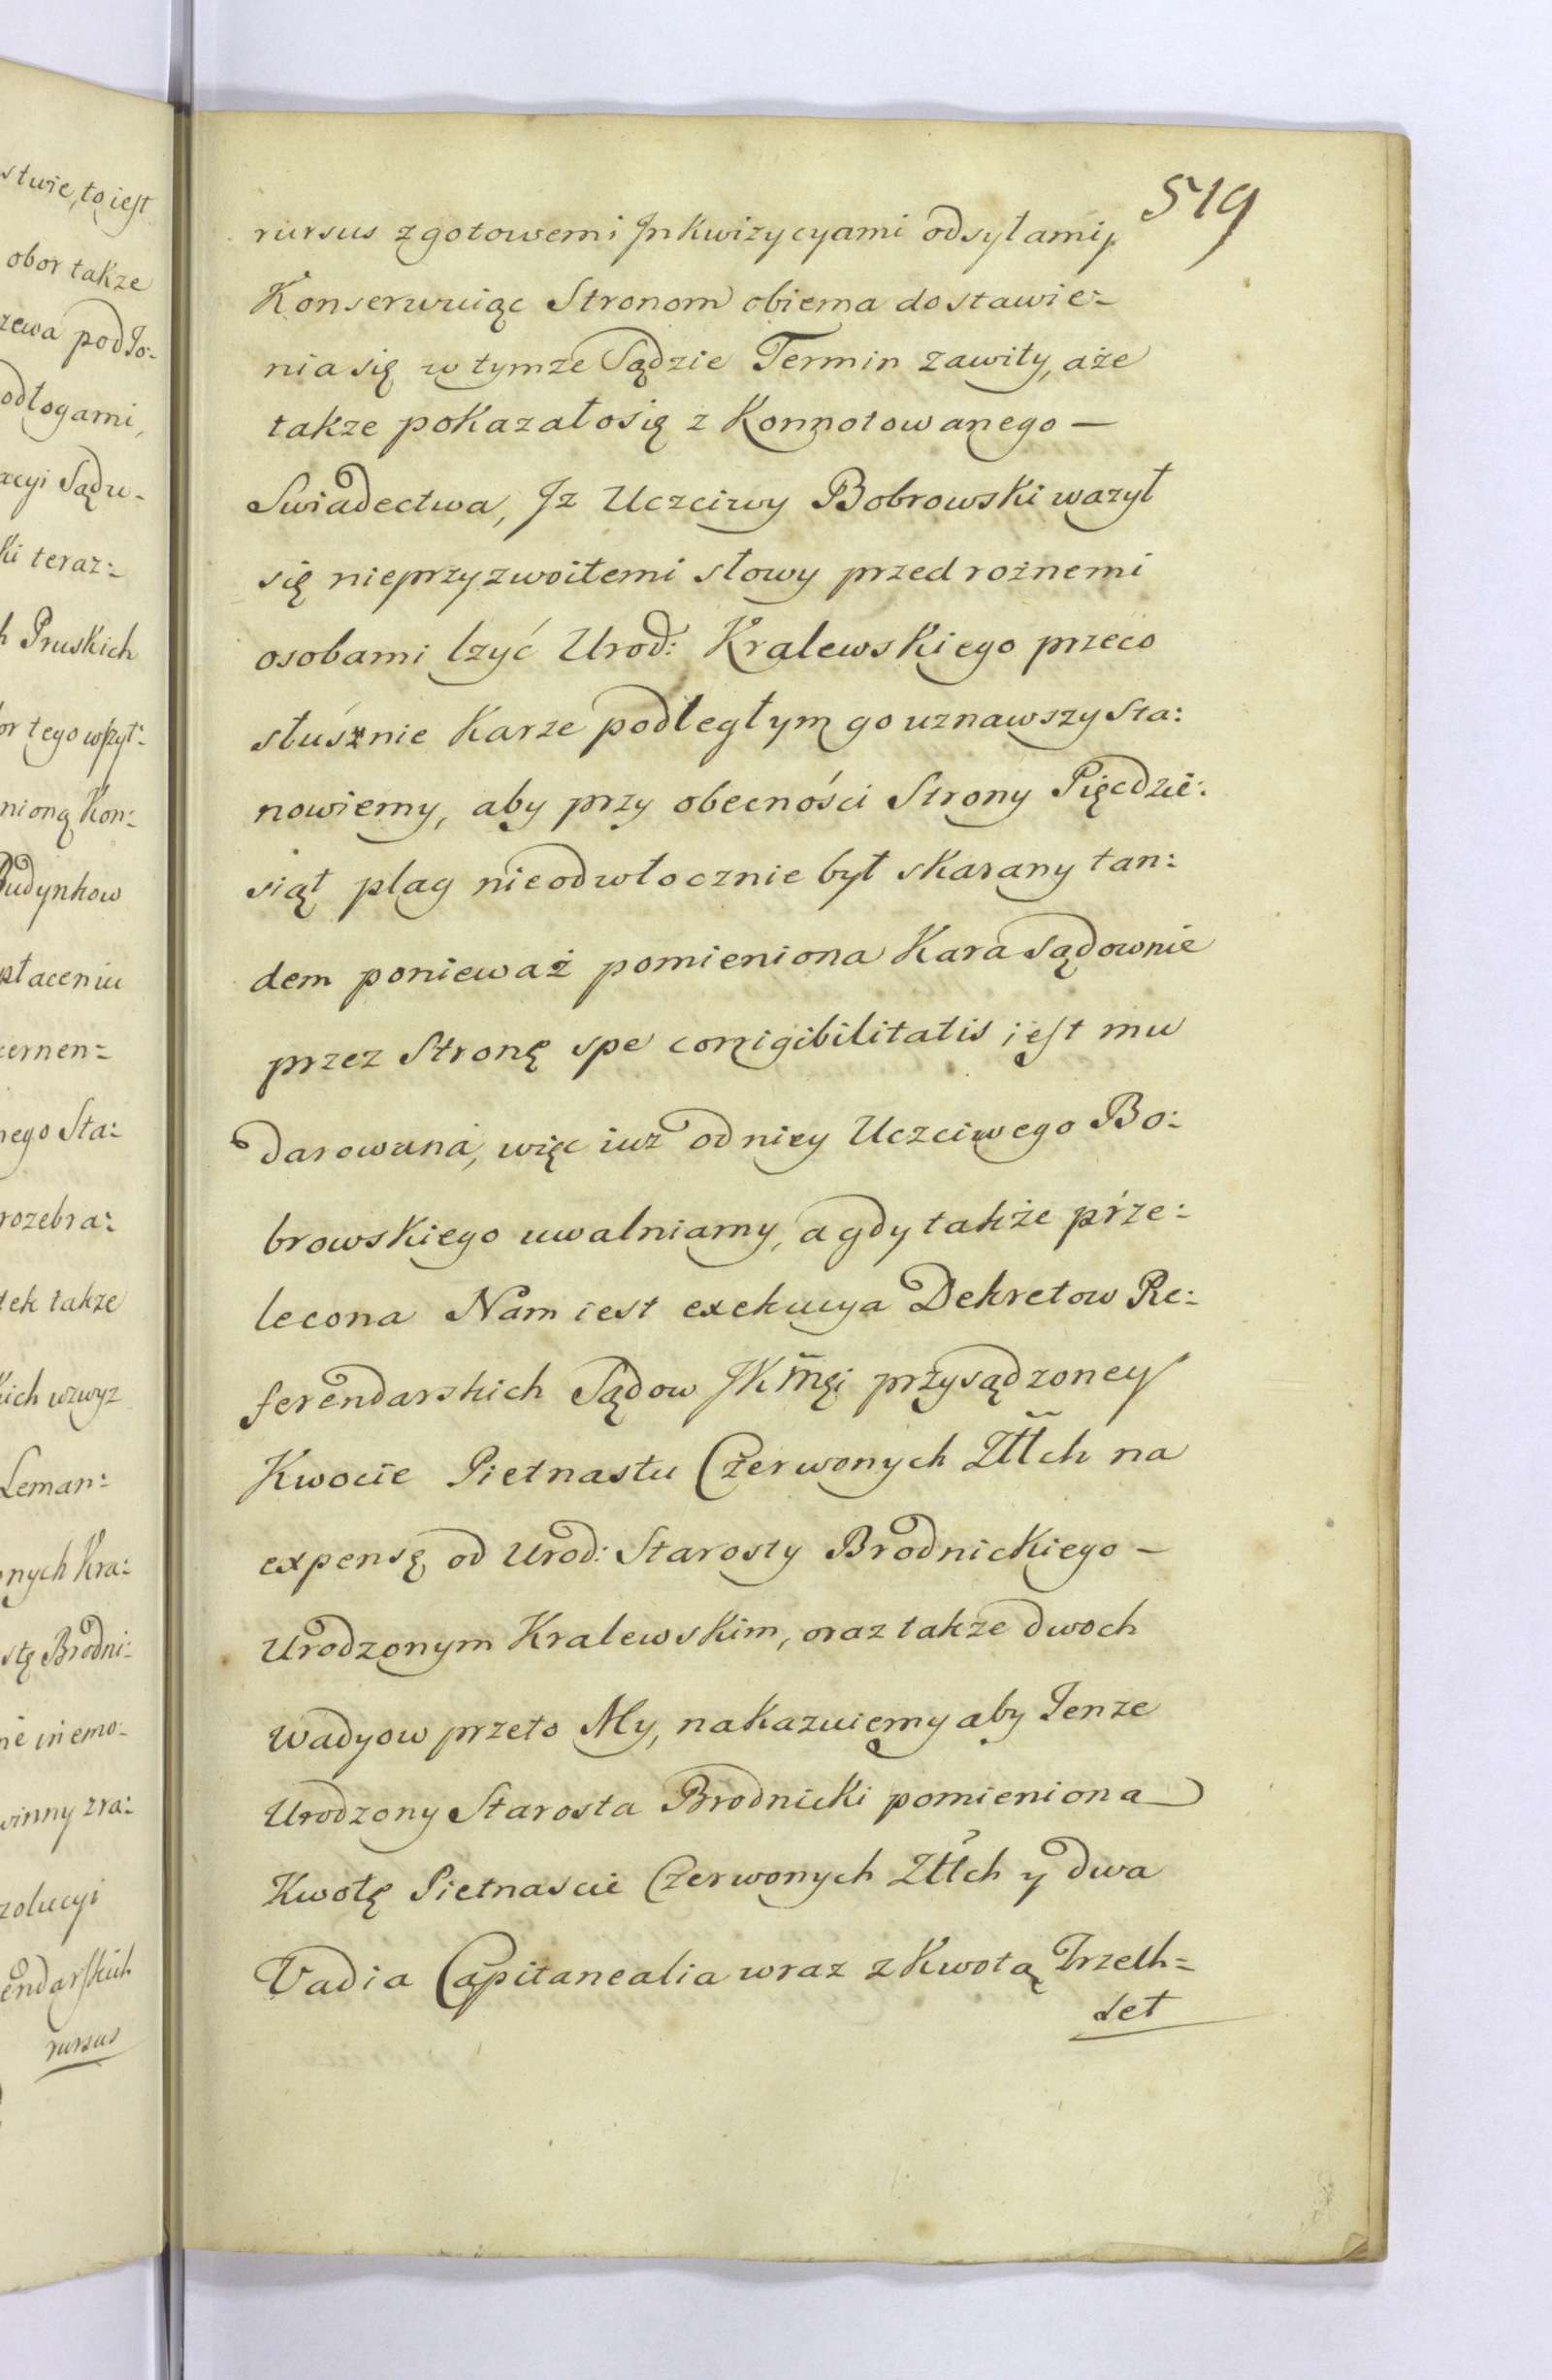 stwie, to iest
obor takze
zewa pod Jo:
odłogami,
acyi Sądu-
ki teraz:
h Pruskich
or tego wszyt:
nioną Kon:
Budynkow
płaceniu
cernen=
nego Sta:
rozebra:
tek takze
kich wzwyz
Leman:
nych Kra:
stę Brodni:
nie inemo-
winny zra:
zolucyi
endarskich
rursus
519
rursus z gotowemi Jnkwizycyami odsyłamy,
Konserwuiąc Stronom obiema dostawie=
nia się w tymze Sądzie Termin zawity, aże
takze pokazało się z Konnotowanego —
Swiadectwa, Jz Uczciwy Bobrowski wazył
się nieprzyzwoitemi słowy przed rożnemi
osobami lzyć Urod: Kralewskiego przeco
słusznie Karze podległym go uznawszy sta:
nowiemy, aby przy obecności Strony Pięcdzie:
siąt plag nieodwłocznie był skarany tan:
dem ponieważ pomieniona Kara sądownie
przez Stronę spe corrigibilitatis iest mu
darowana, więc iuz od niey Uczciwego Bo:
browskiego uwalniamy, a gdy także prze:
lecona Nam iest exekucya Dekretow Re:
ferendarskich Sądow JKmęi przysądzoney
Kwocie Pietnastu Czerwonych Złłch na
expensę od Urod: Starosty Brodnickiego —
Urodzonym Kralewskim, oraz takze dwoch
Wadyow przeto My, nakazuiemy aby Tenze
Urodzony Starosta Brodnicki pomieniona
Kwotę Pietnascie Czerwonych Złłch y dwa
Vadia Capitanealia wraz z Kwotą Trzech=
set